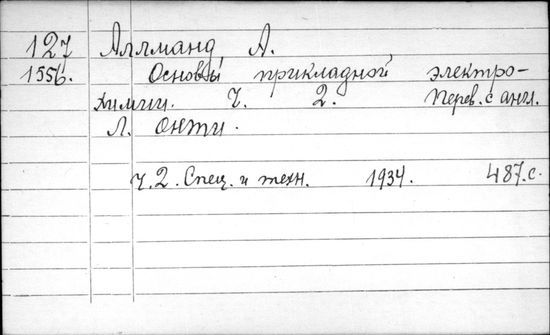 127 Аллманд А.
1556. Основы прикладной электро-
химии. Ч. 2. Перев. с англ.
Л. ОНТИ.
Ч.2. Спец. и техн. 1934. 487.с.